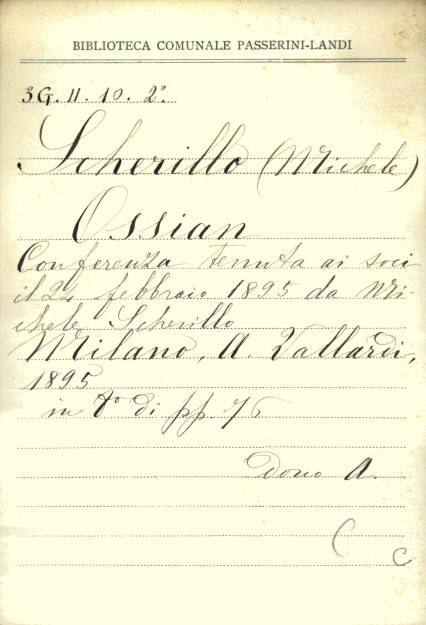 BIBLIOTECA COMUNALE PASSERINI-LANDI
3G. II. 10. 2°.
Scherillo (Michele)
Ossian
Conferenza tenuta ai soci
il 24 febbraio 1895 da Mi-
chele Scherillo
Milano, A. Vallardi,
1895
in 8° di pp. 76
Dono A.
C
C